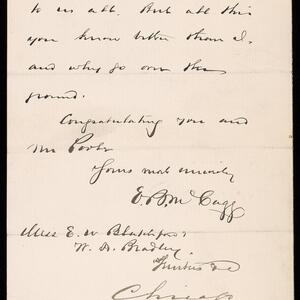 to us all. But all this
you know better than I.
and why go over the
ground.
Congratulating you and
Mr Poole
Yours most sincerely
E. B. McCagg
Mess E. W Blatchford
W. H. Bradley
Trustees &c
Chicago